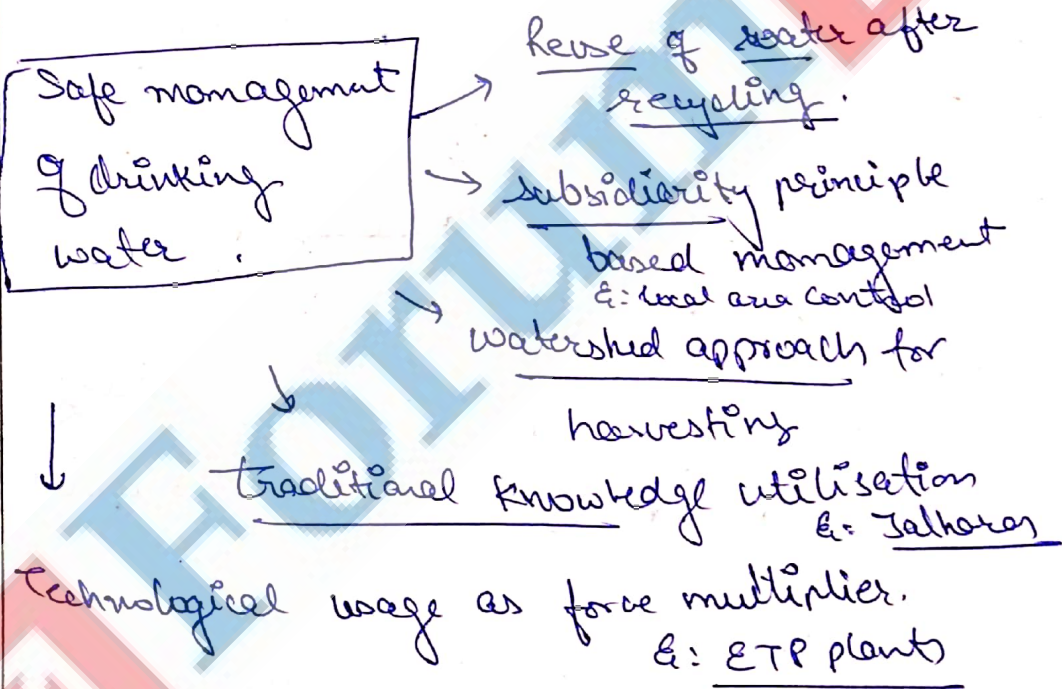 Safe management
of drinking
water.
Reuse of water after
recycling.
subsidiarity principle
based management
Eg: local area control
watershed approach for
harvesting
traditional knowledge utilisation
Eg: Jalharas
Technological usage as force multiplier.
Eg: ETP plants
Forum